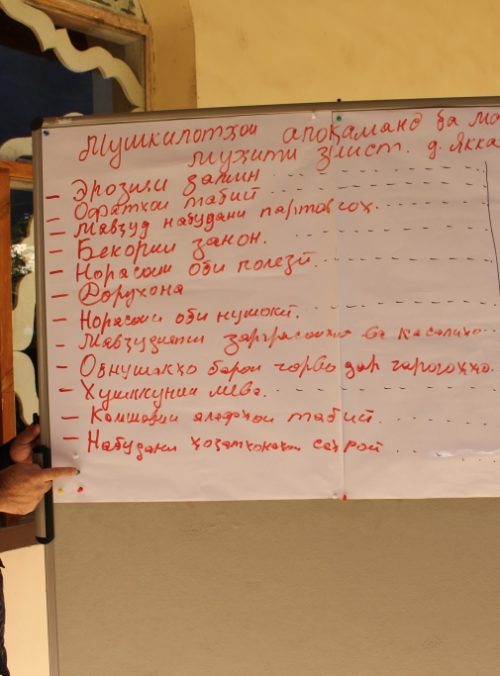 Мушкилотҳои алоқаманд ба ма
муҳити зист. д. Якка
- Эрозияи замин
- Офатҳои табиӣ
- Мавзуд набудани партовгоҳ.
- Бекории занон.
- Норасоии оби полезӣ.
- Дорухона
- Норасоии оби нушокӣ.
- Мавзудияти зараррасонҳо ва касалиҳо.
- Обнушакҳо барои чорво дар чарогоҳҳо.
- Хушккунии мева.
- Камшавии алафҳои табиӣ.
- Набудани ҳоҷатхонаҳои саҳроӣ